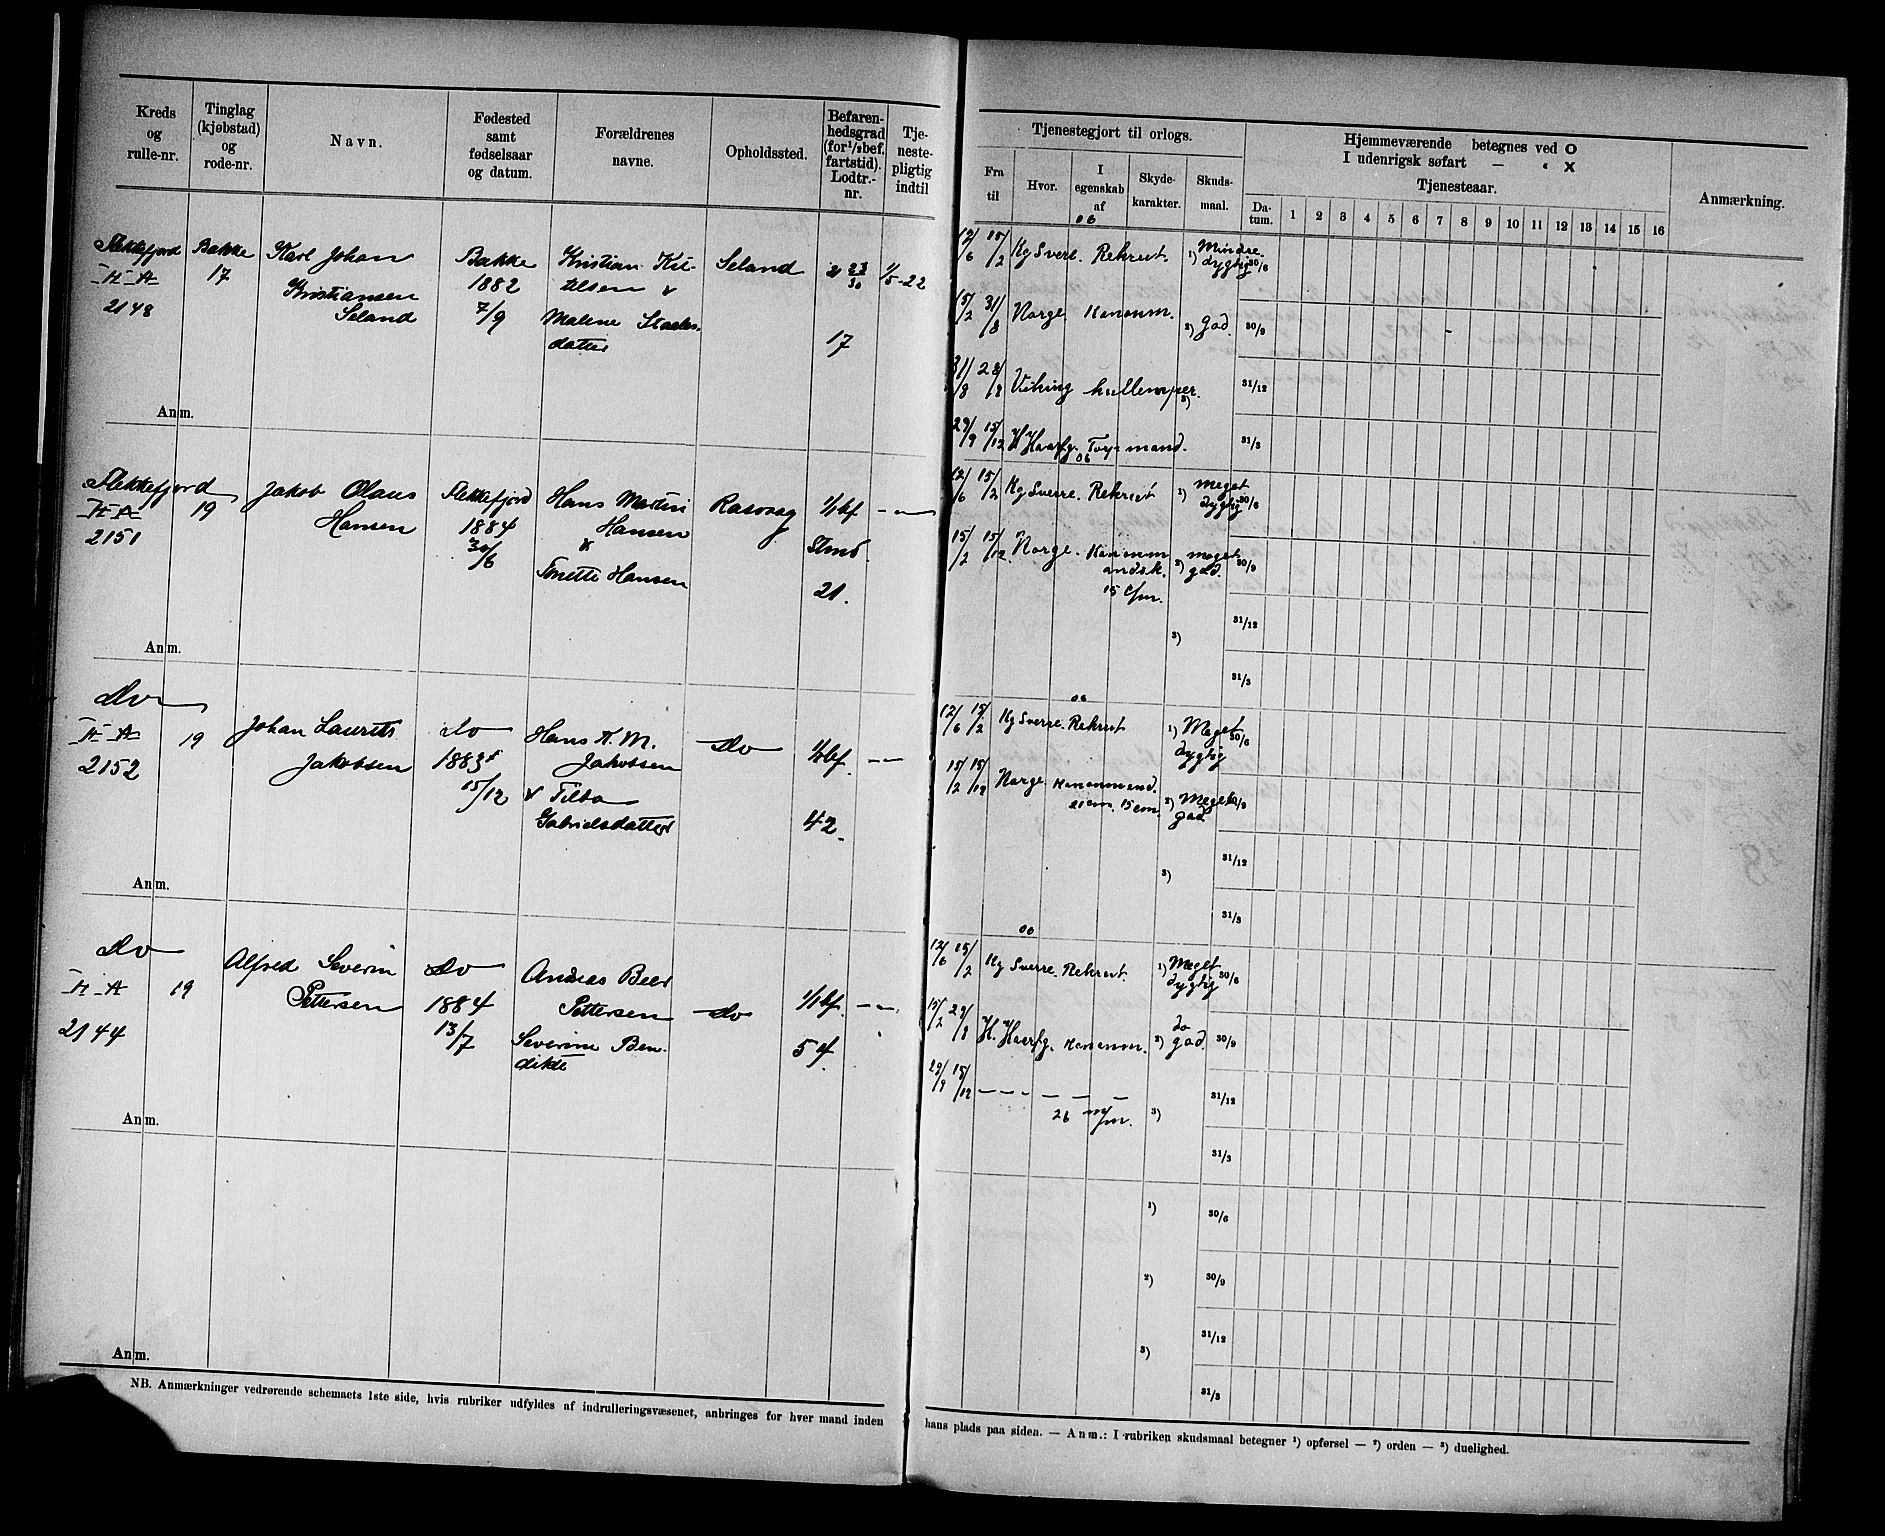 Kreds og rulle-nr.
Tinglag (kjøbstad) og rode-nr.
Navn.
Fødested samt fødselsaar og datum.
Forældrenes navne.
Opholdssted.
Befaren-hedsgrad (for ½ bef. fartstid). Lodtr.-nr.
Tje-neste-pligtig indtil
Tjenestegjort til orlogs.
Fra til
Hvor.
I egenskab af
Skyde-karakter.
Skuds-maal.
Hjemmeværende betegnes ved O
I udenrigsk søfart — „ X
Tjenesteaar.
Da-tum. 1 2 3 4 5 6 7 8 9 10 11 12 13 14 15 16
Anmærkning.
Flekkefjord Bakke Karl Johan Bakke Kristian Seland
II-A 17 Kristiansen 1882
2148 Seland 7/9 Malene
datter 17
06
12/6 15/2 Kg Sverre. Rekrut. 1) Mindre dygtig 30/6
15/2 31/8 Norge. Kanonm. 2) God. 30/9
31/8 28/9 Viking hullemper. 3) 31/12
29/9 15/12 H Haarfg. Tøymand. 31/3
Anm.
Flekkefjord 19 Jakob Olaus Flekkefjord Hans Martin Rasvaag 1/1 bf — „ —
II-A Hansen 1884 Hansen
2151 30/6 & Tonette Hansen 21.
06
12/6 15/2 Kg Sverre. Rekrut 1) meget dygtig 30/6
15/2 15/12 Norge. Kanonm 2) meget god. 30/9
15 c/m.
3) 31/12
31/3
Anm.
Do
II-A 19 Johan Laurits do Hans K. M. Do 1/1 bf. — „ —
2152 Jakobsen 1883 Jakobsen
15/12 & Tilba
Gabrielsdatter 42
06
12/6 15/2 Kg Sverre. Rekrut 1) Meget dygtig 30/6
15/2 15/12 Norge Kanonmand. 2) Meget god 30/9
21 cm. 15 cm.
3) 31/12
31/3
Anm.
Do Alfred Severin Do Andreas Beer
II-A 19 Pettersen 1884 Pettersen do 1/1 bf. — „ —
2144 13/7 Severine Ben-
dikte 54.
06
12/6 15/2 Kg Sverre. Rekrut. 1) Meget dygtig 30/6
15/2 29/9 H. Haarfg. Kanonm. 2) do god. 30/9
29/9 15/12 — — — — — — 31/12
26 m/m. 3)
31/3
Anm.
1) 30/6
2) 30/9
3) 31/12
31/3
Anm.
NB. Anmærkninger vedrørende schemaets 1ste side, hvis rubriker udfyldes af indrulleringsvæsenet, anbringes for hver mand inden hans plads paa siden. — Anm.: I rubriken skudsmaal betegner ¹) opførsel — ²) orden — ³) duelighed.